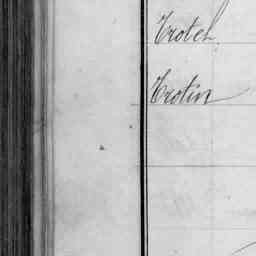 Trotel
Trotin